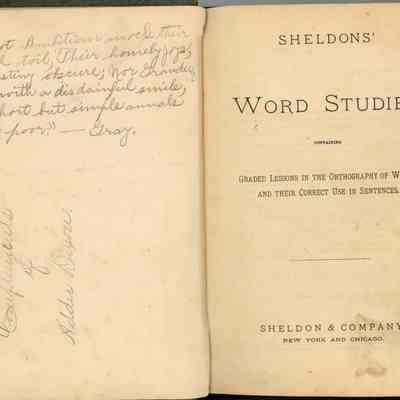 ot Ambition mock their
l toil, Their homely joys,
stiny obscure; Nor Grandeu
with a disdainful smile,
hort but simple annals
poor." — Gray.
Compliments
of
SHELDONS'
WORD STUDIE
CONTAINING
GRADED LESSONS IN THE ORTHOGRAPHY OF W
AND THEIR CORRECT USE IN SENTENCES.
SHELDON & COMPANY
NEW YORK AND CHICAGO.